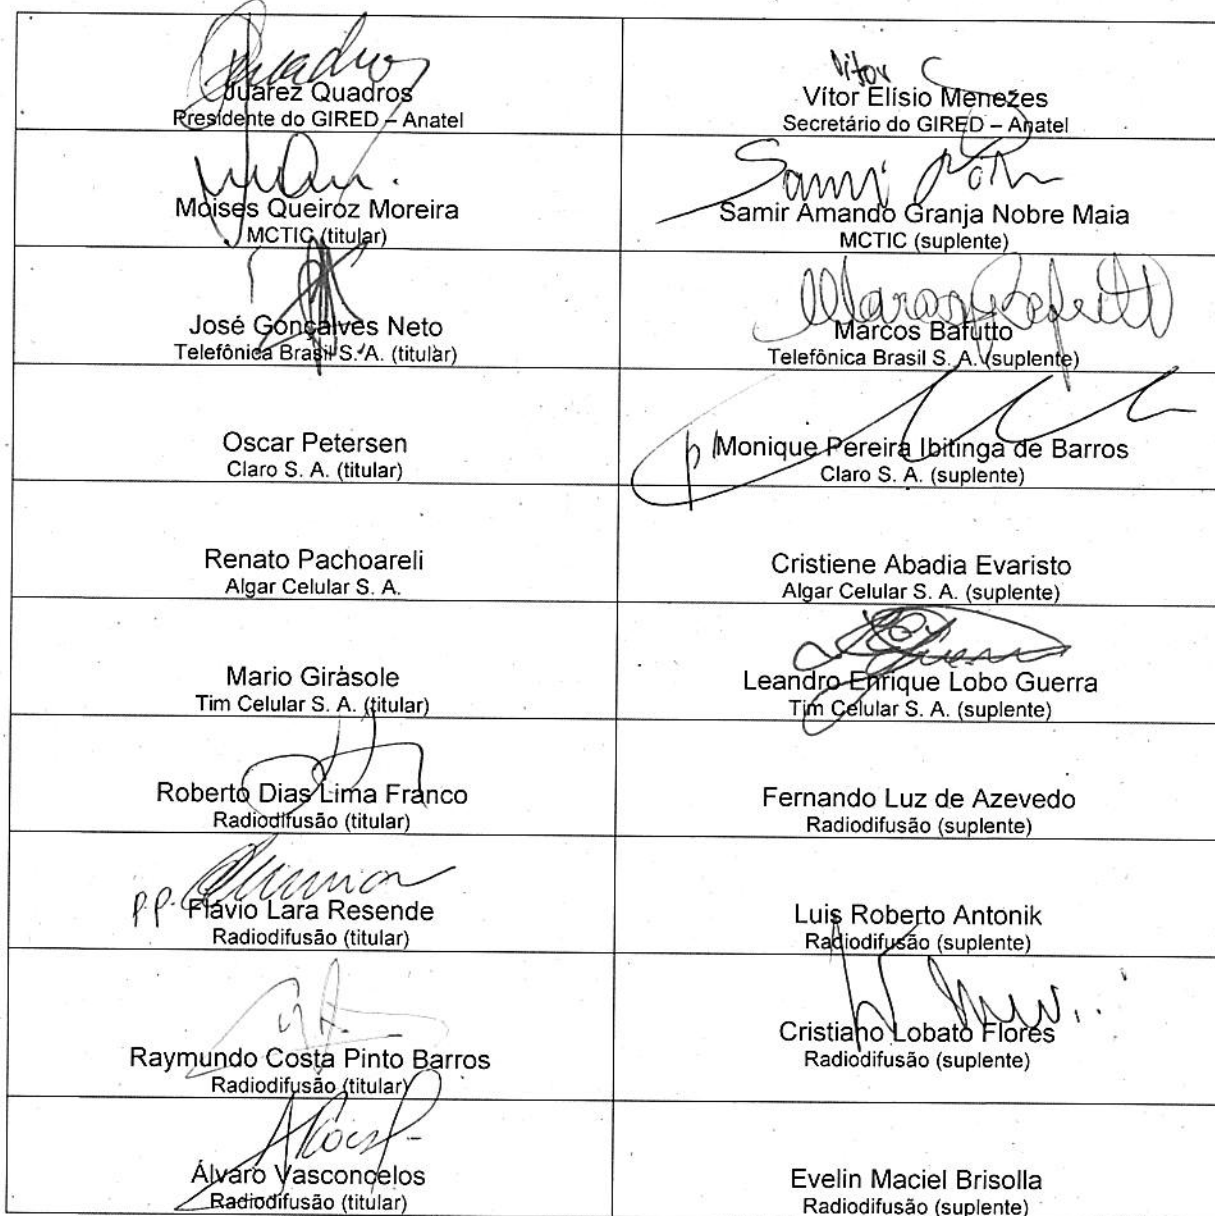 Quadros
Juarez Quadros
Presidente do GIRED – Anatel
Vitor
Vítor Elísio Menezes
Secretário do GIRED – Anatel
Moises Queiroz Moreira
MCTIC (titular)
Samir
Samir Amando Granja Nobre Maia
MCTIC (suplente)
José Gonçalves Neto
Telefônica Brasil S. A. (titular)
Marcos Bafutto
Telefônica Brasil S. A. (suplente)
Oscar Petersen
Claro S. A. (titular)
p/
Monique Pereira Ibitinga de Barros
Claro S. A. (suplente)
Renato Pachoareli
Algar Celular S. A.
Cristiene Abadia Evaristo
Algar Celular S. A. (suplente)
Mario Girasole
Tim Celular S. A. (titular)
Leandro Enrique Lobo Guerra
Tim Celular S. A. (suplente)
Roberto Dias Lima Franco
Radiodifusão (titular)
Fernando Luz de Azevedo
Radiodifusão (suplente)
p.p.
Flávio Lara Resende
Radiodifusão (titular)
Luis Roberto Antonik
Radiodifusão (suplente)
Raymundo Costa Pinto Barros
Radiodifusão (titular)
Cristiano Lobato Flores
Radiodifusão (suplente)
Álvaro Vasconcelos
Radiodifusão (titular)
Evelin Maciel Brisolla
Radiodifusão (suplente)